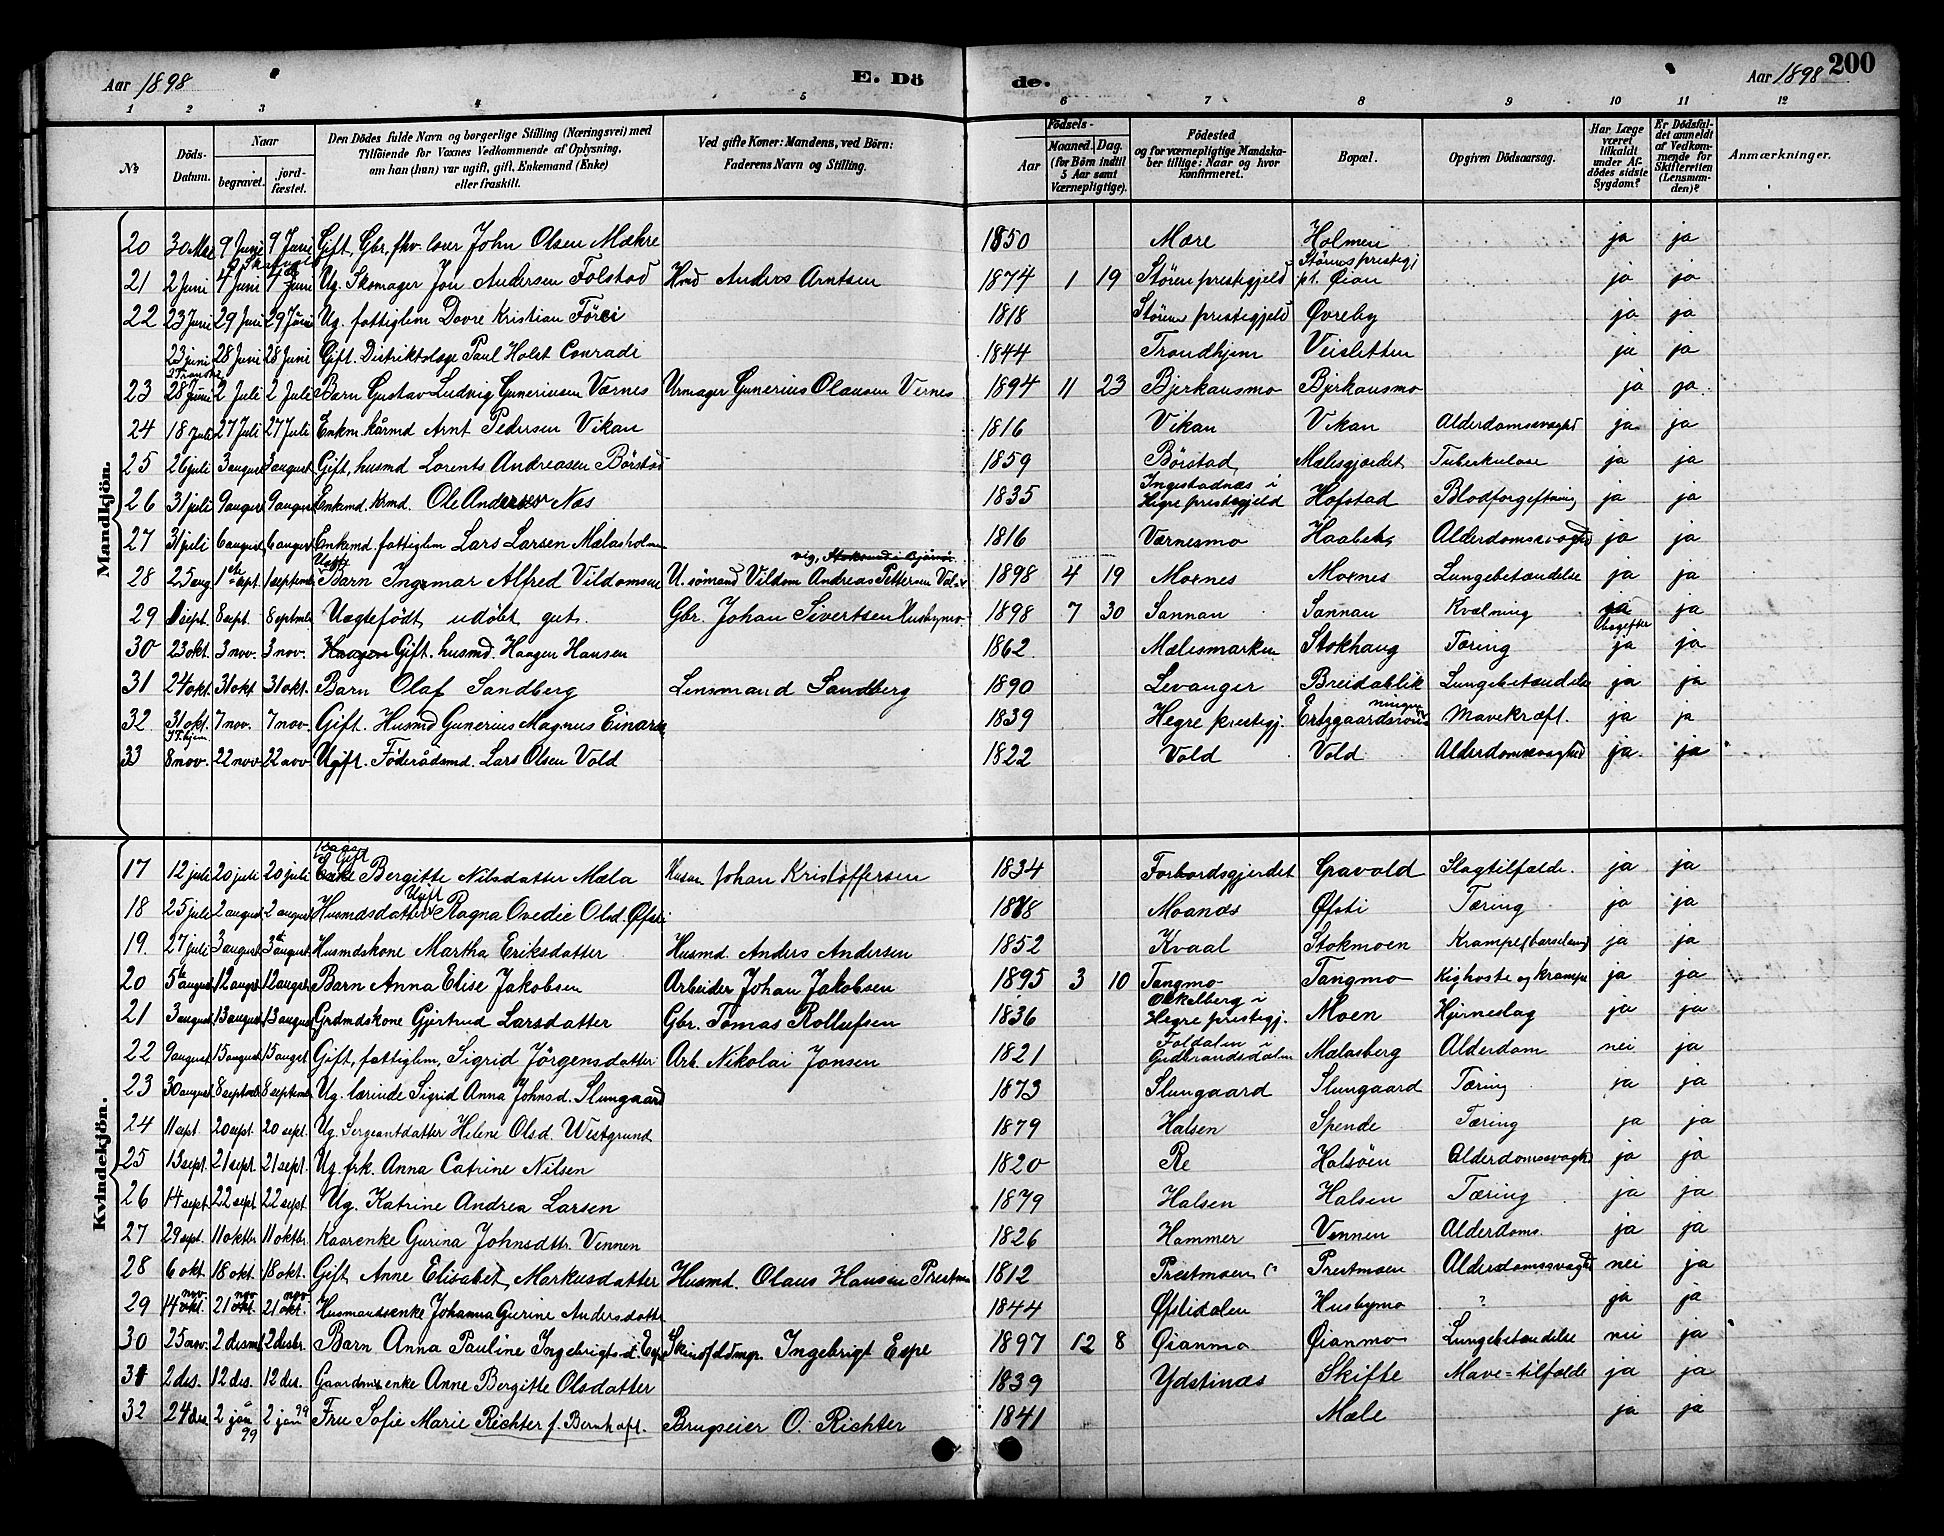 Aar 1898
E. Dö
de.
Aar 1898
200
1 2 3 4 5 6 7 8 9 10 11 12
№
Döds-Datum.
Naar
begravet.
jord-fæstet.
Den Dödes fulde Navn og borgerlige Stilling (Næringsvei) med
Tilföiende for Voxnes Vedkommende af Oplysning,
om han (hun) var ugift, gift, Enkemand (Enke)
eller fraskilt.
Ved gifte Koner: Mandens, ved Börn:
Faderens Navn og Stilling.
Födsels-
Aar
Maaned. Dag.
(for Börn indtil
5 Aar samt
Værnepligtige).
Födested
og for værnepligtige Mandska-
ber tillige: Naar og hvor
konfirmeret.
Bopæl.
Opgiven Dödsaarsag.
Har Læge
været
tilkaldt
under Af-
dödes sidste
Sygdom?
Er Dödsfal-
det anmeldt
af Vedkom-
mende for
Skifteretten
(Lensman-
den)?
Anmærkninger.
Mandkjön.
20 30 Mai 9 Juni 9 Juni Gift, Gbr. John Olsen Mækre 1850 Mære Holmen ja ja
21 2 Juni 4 Juni 4 Juni Ug. Skomager Jon Andersen Folstad Hmd Anders Arntsen 1874 1 19 Stören prestegjeld Störens prestegj. pt. Öian ja ja
22 23 Juni 29 Juni 29 Juni Ug. fattiglem Dovre Kristian 1818 Stören prestegjeld Øvreby ja ja
23 juni 28 Juni 28 Juni Gift. Distriktslæge Paul Holst Conradi 1844 Trondhjem Veisletten ja ja
23 28 Juni 2 Juli 2 Juli Barn Gustav Ludvig Guneriusen Værnes Urmager Gunerius Olausen Vernes 1894 11 23 Bjerkansmo Bjerkansmo ja ja.
24 18 Juli 27 Juli 27 Juli Enkm. kårmd Arnt Pedersen Vikan 1816 Vikan Vikan Alderdomssvaghed ja ja
25 26 juli 3 august 3 august Gift, husmd Lorents Andreasen Börstad 1859 Börstad Mælesgjerdet Tuberkulose ja ja
26 31 juli 9 august 9 august Enkemd. Krmd. Ole Andersen Næs 1835 Ingstadnæs i Hegre prestegjeld Hofstad Blodforgiftning ja ja
27 31 juli 6 august 6 august Enkemd. fattiglem Lars Larsen Mælasholmen 1816 Værnesmo Haabet Alderdomssvaghed ja ja
28 25 aug 1ste sept. 1 september Uægte Barn Ingemar Alfred Vildomsen U. sömand Vildom Andreas Pettersen 1898 4 19 Moxnes Moxnes Lungebetændelse ja ja
29 1 sept. 8 sept. 8 septmbr Uægtefödt udöbt gut. Gbr. Johan Sivertsen Husbymo 1898 7 30 Sannan Sannan Kvælning ja ja
30 23 okt. 3 nov. 3 nov. Haagen Gift. husmd. Haagen Hansen 1862 Mælesmarken Stokhaug Tæring ja ja
31 24 okt. 31 okt 31 okt. Barn Olaf Sandberg Lensmand Sandberg 1890 Levanger Breidablik Lungebetændelse ja ja
32 31 okt. 7 nov. 7 nov Gift. Husmd Gunerius Magnus Einarsen 1839 Hegre prestegj. Mavekræft. ja ja
33 8 nov. 22 nov 22 nov Ugift. Föderådsmd. Lars Olsen Vold 1822 Vold Vold Alderdomssvaghed ja ja
Kvindekjön.
17 12 juli 20 juli 20 juli Gift Enke Bergitte Nilsdatter Mæla Husm Johan Kristoffersen 1834 Forbordsgjerdet Gravold Slagtilfælde. ja ja
18 25 juli 2 august 2 august Husmdsdatter Ugift Ragna Ovedie Olsd. Øfsti 1878 Moanæs Øfsti Tæring ja ja
19. 27 juli 3 august 3 august Husmdskone Martha Eriksdatter Husmd. Anders Andersen 1852 Kvaal Stokmoen Krampe (barselseng) ja ja
20 5te august 12 august 12 august Barn Anna Elise Jakobsen Arbeider Johan Jakobsen 1895 3 10 Tangmo Tangmo Kighoste og krampe ja ja
21 3 august 13 august 13 august Grdmdskone Gjertrud Larsdatter Gbr. Tomas Rollufsen 1836 Okkelberg i Hegre prestegj. Moen Hjerneslag ja ja
22 9 august 15 august 15 august Gift, fattiglm. Sigrid Jörgensdatter Arb. Nikolai Jonsen 1821 Foldalen i Gudbrandsdalen Mælasberg Alderdom nei ja
23 30 august 8 septmbr 8 septembr Ug. lærinde Sigrid Anna Johnsd. Slungaard 1873 Slungaard Slungaard Tæring ja ja
24 11 sept 20 sept. 20 sept. Ug. Sergeantdatter Helene Olsd. Westgrund 1879 Halsen Spende Tæring ja ja
25 13 sept. 21 sept. 21 sept. Ug. frk. Anna Catrine Nilsen 1820 Re Halsöen Alderdomssvaghed ja ja
26 14 sept. 22 sept. 22 sept. Ug. Katrine Andrea Larsen 1879 Halsen Halsen Tæring ja ja
27 29 sept. 11 oktbr. 11 oktbr. Kaarenke Gurina Johnsdtr. Vennen 1826 Hammer Vennen Alderdoms. ja ja
28 6 okt. 18 okt. 18 okt. Gift, Anne Elisabet Markusdatter Husmd. Olaus Hansen Prestm 1812 Prestmoen (? Prestmoen Alderdomssvaghed nei ja
29 14 okt. nov 21 okt. nov 21 okt. nov Husmandsenke Johanna Gurine Andersdatter 1844 Øfstidalen Husbymo ? ja ja
30 25 nov. 2 desmb 2 desbr. Barn Anna Pauline Ingebrigtsd. Espe Ingebrigt Espe 1897 12 8 Øianmo Øianmo Lungebetændelse nei ja
31 2 des. 12 des. 12 des. Gaardmsenke Anne Bergitte Olsdatter 1839 Ydstinæs Skifte Mave=tilfælde ja ja
32 24 des 2 jan 99 2 jan 99 Fru Sofie Marie Richter f. Bernhoft. Brugseier O. Richter 1841 Mæle ja ja